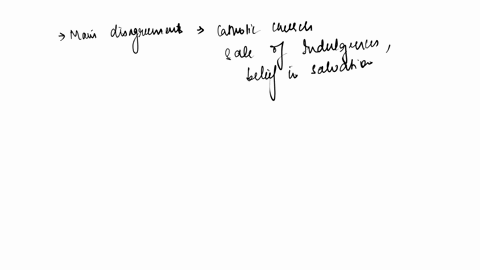 → Main disagreement → Catholic church
sale of Indulgences,
belief in salvation